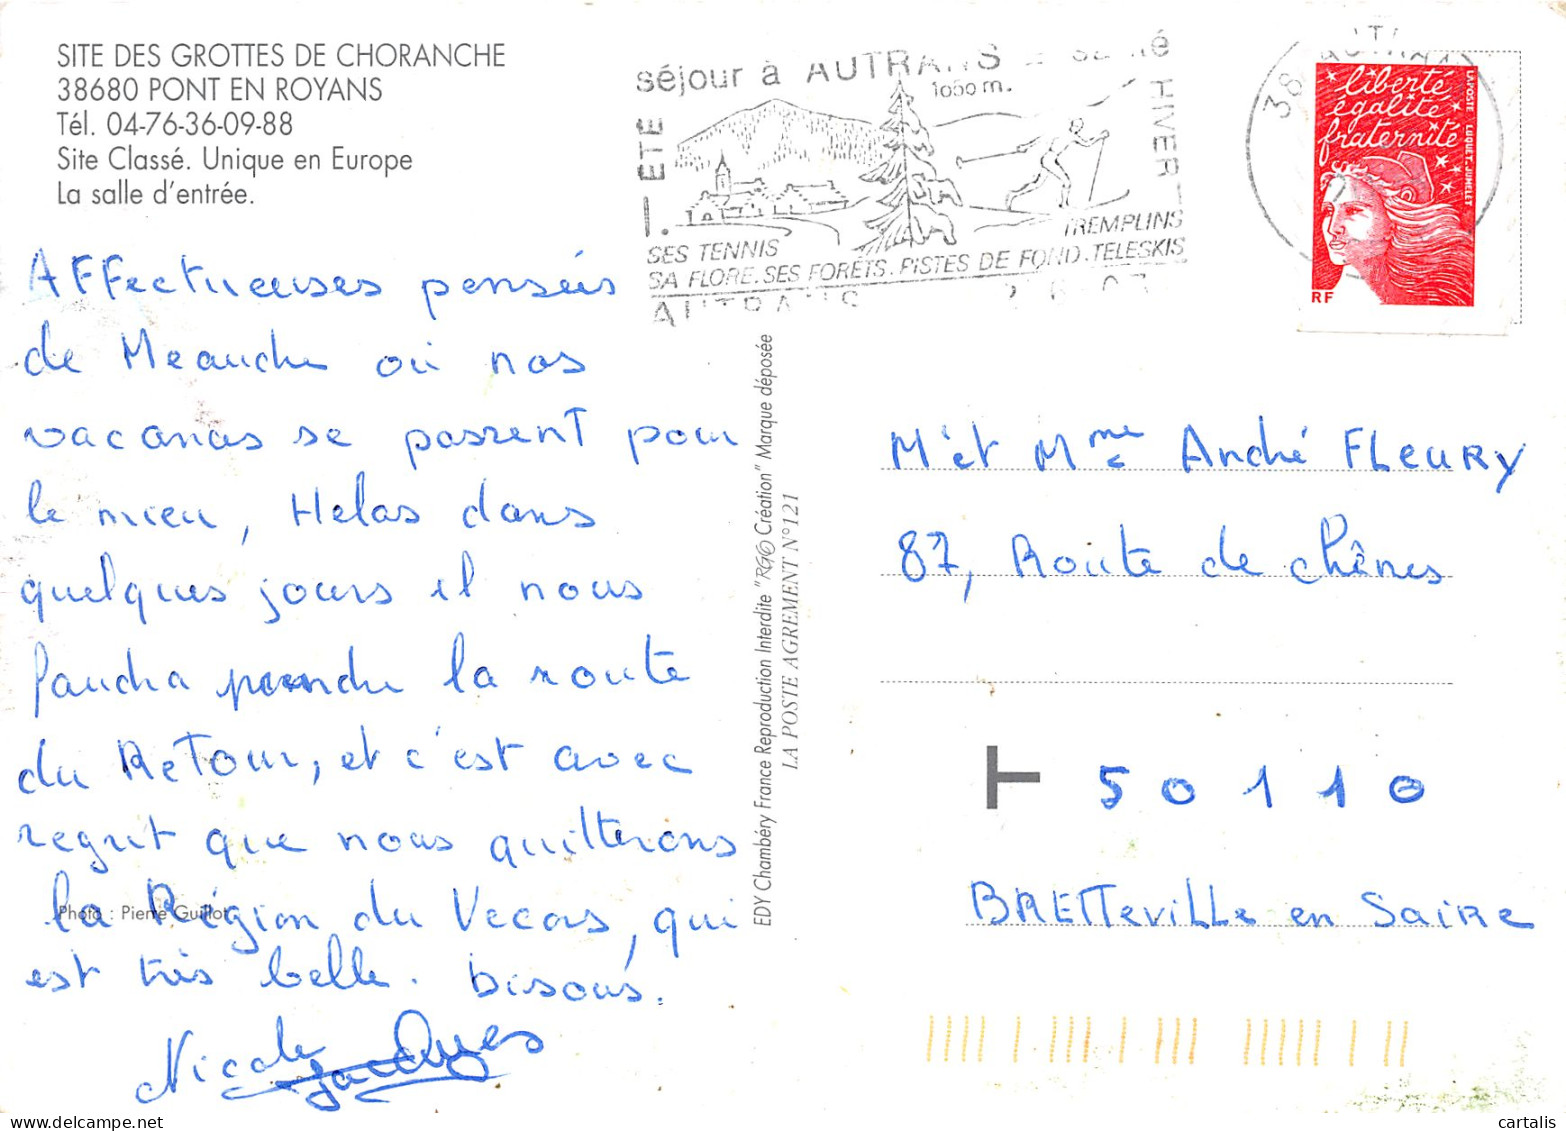 SITE DES GROTTES DE CHORANCHE
38680 PONT EN ROYANS
Tél. 04-76-36-09-88
Site Classé. Unique en Europe
La salle d'entrée.
séjour à AUTRANS
1050 m.
ÉTÉ
HIVER
SES TENNIS
TREMPLINS
SA FLORE. SES FORÊTS. PISTES DE FOND. TELESKIS
AUTRANS
38
liberté
égalité
fraternité
LA POSTE LUQUET. JUMELET
RF
Affectueuses pensées
de Meauche où nos
vacances se passent pour
le mieu, Helas dans
quelques jours il nous
faudra prendre la route
du Retour, et c'est avec
regret que nous quitterons
la Région du Vecors, qui
est très belle. Bisous.
Nicole Jacques
Photo : Pierre Guillot
EDY Chambéry France Reproduction Interdite "RGO Création" Marque déposée
LA POSTE AGREMENT N°121
Mr et Mme André FLEURY
87, Route de chênes
50110
BRETTEVILLE en SAIRE